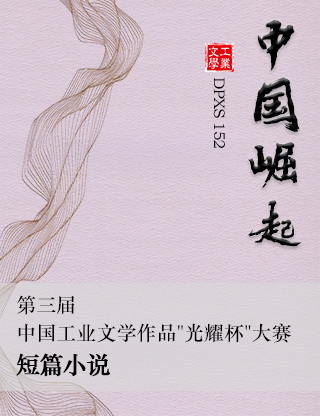 中国崛起
工業文學
DPXS 152
第三届
中国工业文学作品"光耀杯"大赛
短篇小说